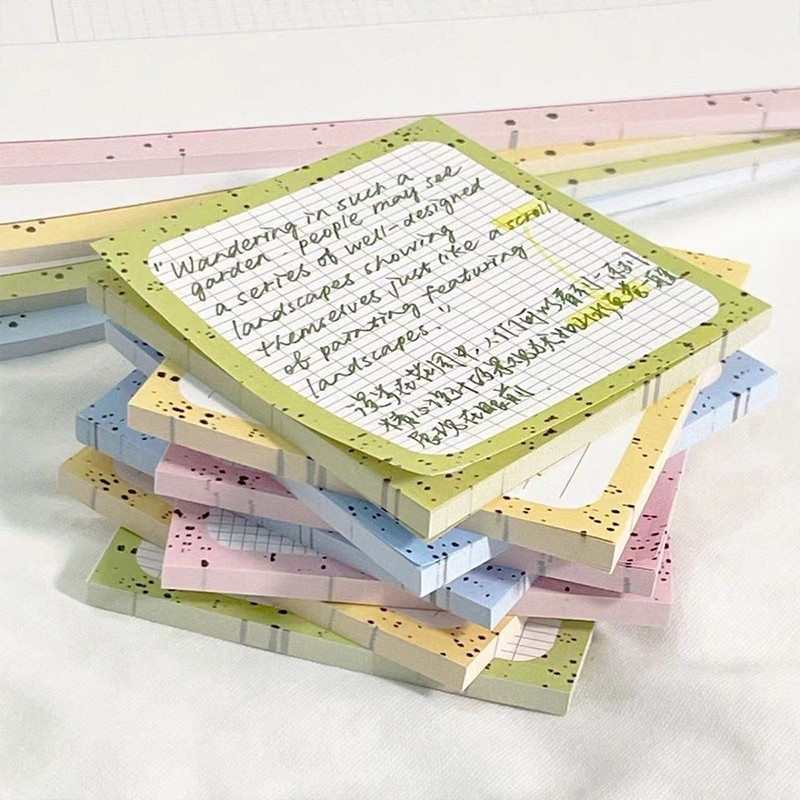 "Wandering in such a
garden. people may see
a series of well-designed
landscapes showing
themselves just like a scroll
of painting featuring
landscapes."
漫步在花园中,人们可以看到一系列
精心设计的景观就像山水画卷一样
展现在眼前